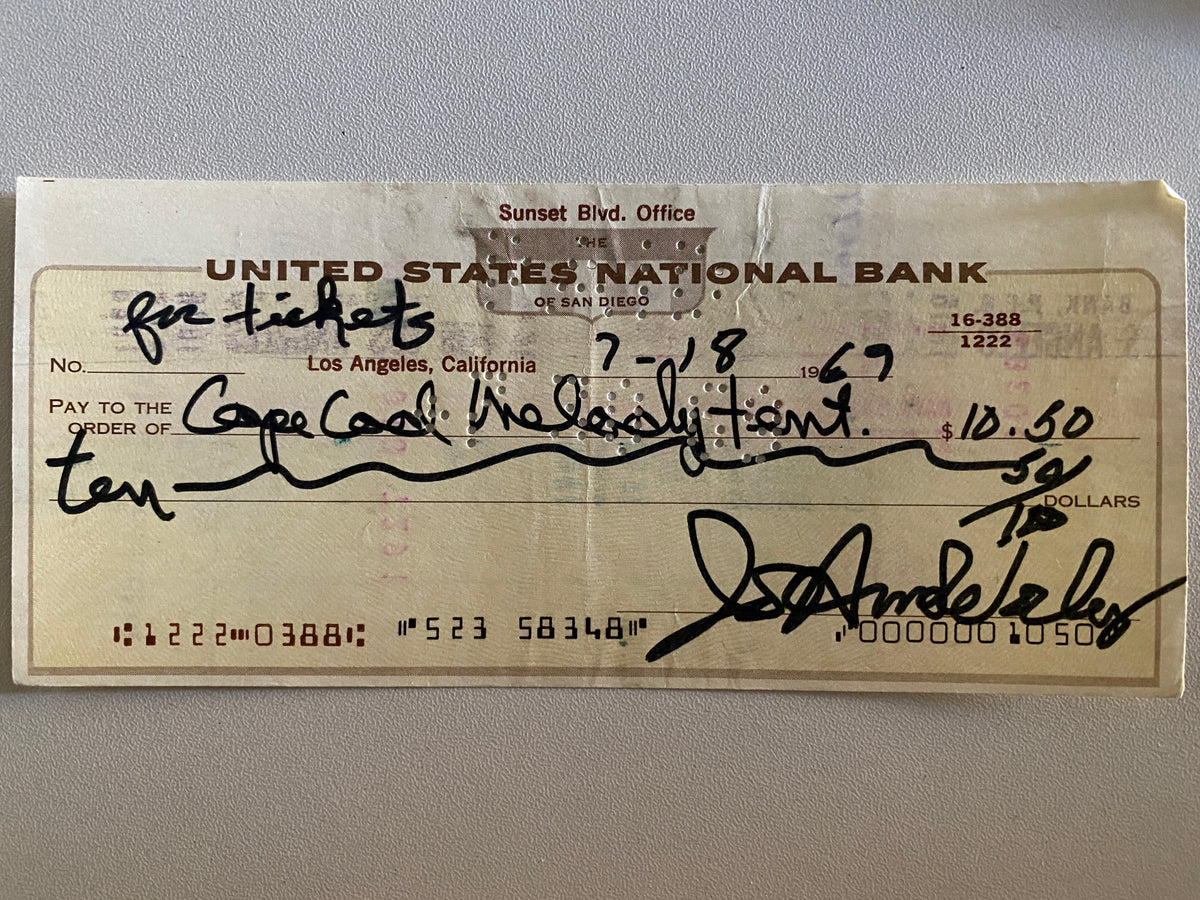 Sunset Blvd. Office
THE
UNITED STATES NATIONAL BANK
OF SAN DIEGO
for tickets
16-388
1222
No.
Los Angeles, California 7-18 1969
PAY TO THE
ORDER OF Cape Cod Melody tent. $10.50
ten 50/100 DOLLARS
⑆1222⑉0388⑆ ⑈523 58348⑈ ⑇000000 1050